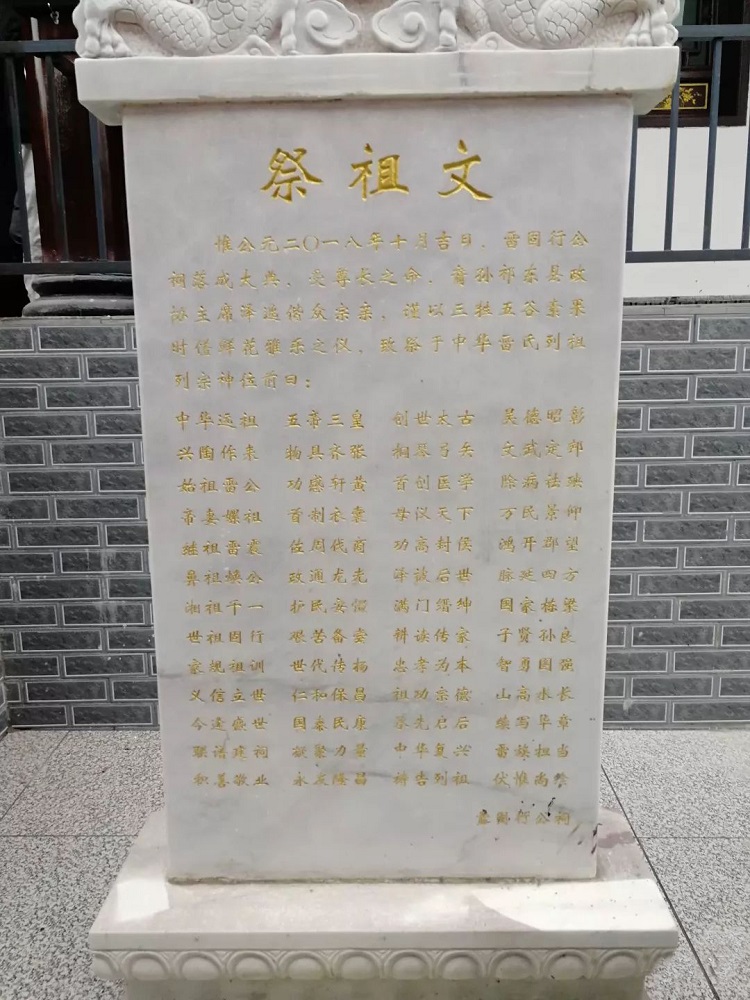 祭祖文
惟公元二〇一八年十月吉日，雷固行公
祠落成大典，受尊长之命，裔孙祁东县政
协主席泽运偕众宗亲，谨以三牲五谷素果
时馐鲜花雅乐之仪，致祭于中华雷氏列祖
列宗神位前曰：
中华远祖 五帝三皇 创世太古 昊德昭彰
兴陶作耒 物具齐张 桐琴弓矢 文武定邦
始祖雷公 功盛轩黄 首创医学 除病祛殃
帝妻嫘祖 首制衣裳 母仪天下 万民景仰
继祖雷震 佐周伐商 功高封侯 鸿开郡望
鼻祖焕公 政通龙光 泽被后世 脉延四方
湘祖千一 护民安 满门缙绅 国家栋梁
世祖固行 艰苦备尝 耕读传家 子贤孙良
家规祖训 世代传扬 忠孝为本 智勇图强
义信立世 仁和保昌 祖功宗德 山高水长
今逢盛世 国泰民康 承先启后 续写华章
联谱建祠 凝聚力量 中华复兴 雷族担当
积善敬业 永发隆昌 祷告列祖 伏惟尚飨
行公祠